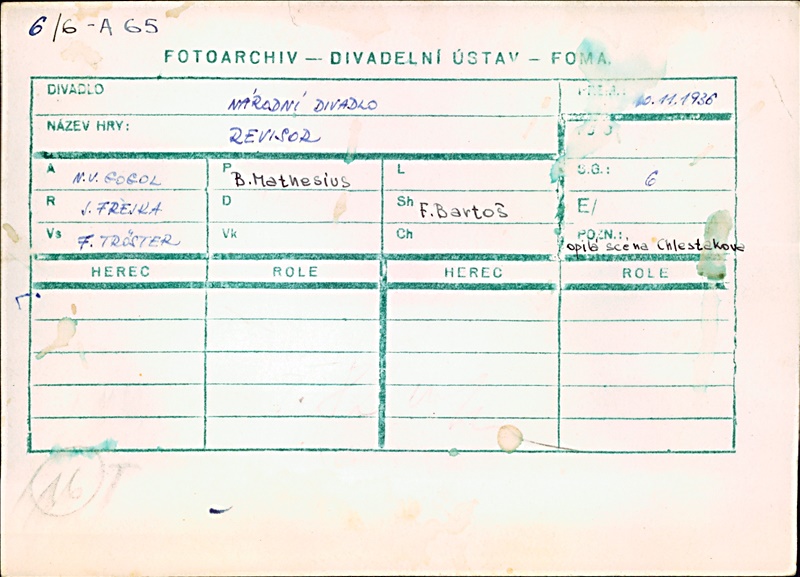 6/6-A 65
FOTOARCHIV — DIVADELNÍ ÚSTAV — FOMA
DIVADLO NÁRODNÍ DIVADLO 10.11.1936
NÁZEV HRY: REVISOR
A N.V. GOGOL P B.Mathesius L S.G.: 6
R J. FREJKA D Sh F.Bartoš E/
Vs F. TRÖSTER Vk Ch POZN.: opilá scéna Chlestakova
HEREC ROLE HEREC ROLE
16